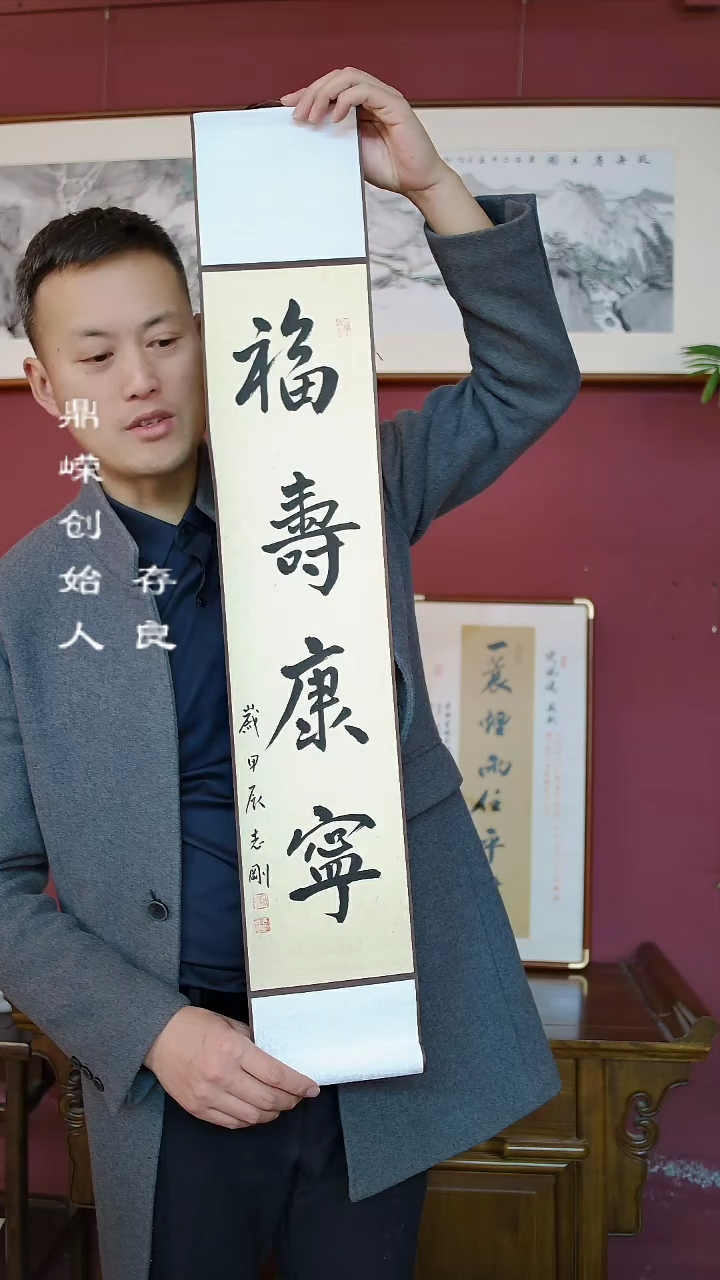 福壽康寧
歲甲辰志剛
鼎嵘创始人
存良
一蓑煙雨任平